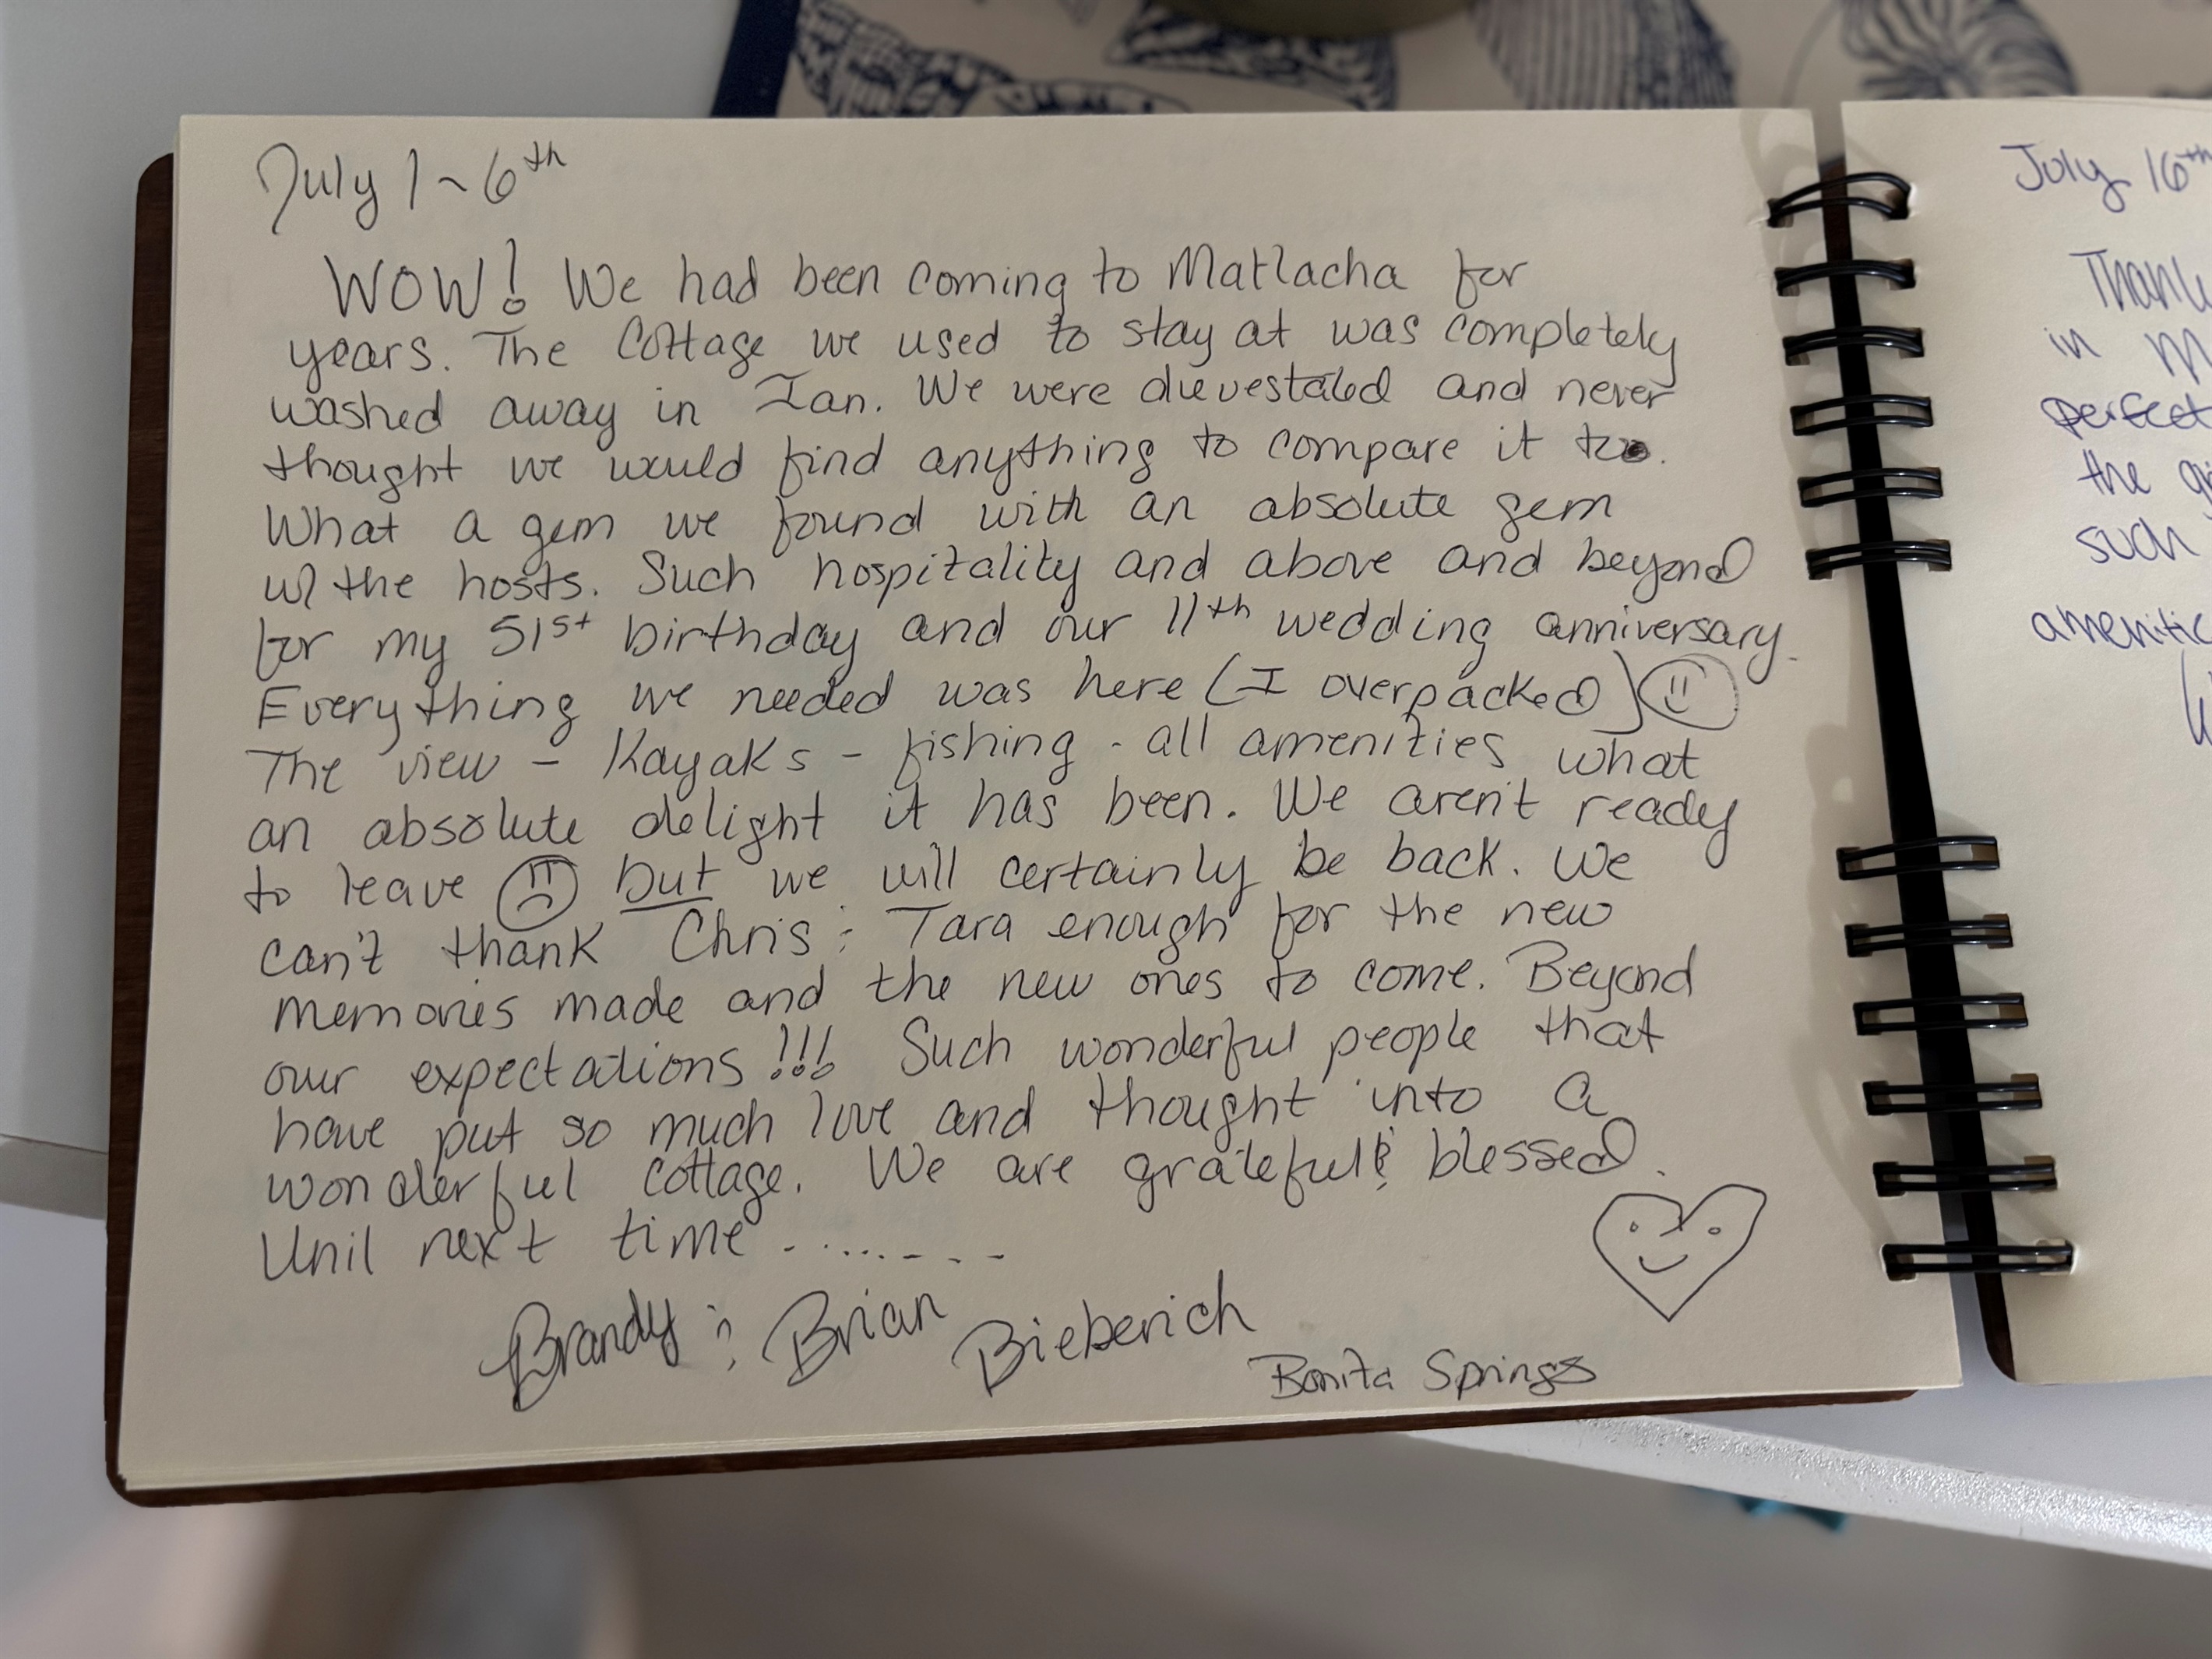 July 1~6th
WOW! We had been coming to Matlacha for
years. The Cottage we used to stay at was completely
washed away in Ian. We were dievestated and never
thought we would find anything to compare it to.
What a gem we found with an absolute gem
w/ the hosts. Such hospitality and above and beyond
for my 51st birthday and our 11th wedding anniversary.
Everything we needed was here (I overpacked)
The view - Kayaks - fishing - all amenities what
an absolute delight it has been. We aren't ready
to leave but we will certainly be back. We
can't thank Chris & Tara enough for the new
memories made and the new ones to come. Beyond
our expectations!!! Such wonderful people that
have put so much love and thought into a
wonderful cottage. We are grateful & blessed.
Unil next time.........
Brandy & Brian Bieberich
Bonita Springs
July 16th
Thank
in M
perfect
the
such